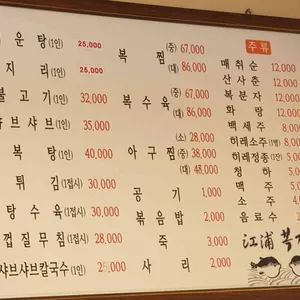 운 탕 (1인) 25,000
지 리 (1인) 25,000
불고기 (1인) 32,000
샤브샤브 (1인) 35,000
복 탕 (1인) 40,000
튀 김 (1접시) 30,000
탕 수 육 (1접시) 30,000
껍질무침 (1접시) 28,000
샤브샤브칼국수 (1인) 25,000
복 찜 (중) 67,000
(대) 86,000
복 수 육 (중) 67,000
(대) 86,000
아 구 찜 (소) 28,000
(중) 38,000
(대) 48,000
공 기 1,000
볶음밥 2,000
죽 3,000
사 리 2,000
주류
매 취 순 12,000
산 사 춘 12,000
복 분 자 12,000
화 랑
백 세 주
히레소주 (1잔)
히레정종 (1잔)
청 하
맥 주
소 주
음 료 수
江浦